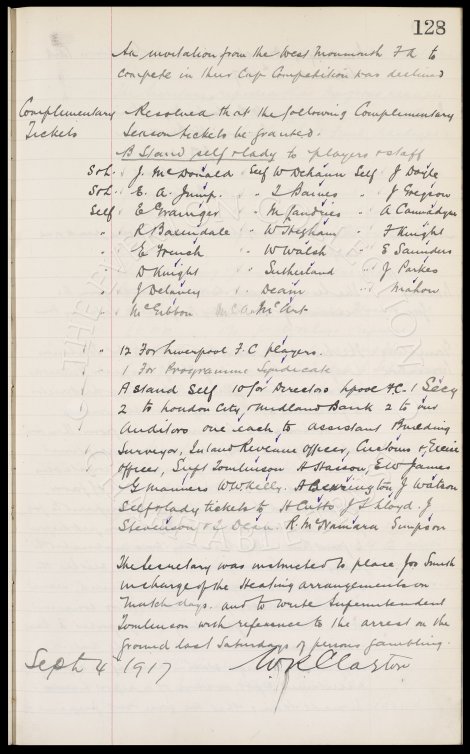 128
An invitation from the West Monmouth F A to
compete in their Cup Competition was declined
Complementary Tickets
Resolved that the following Complementary
Season tickets be granted.
B Stand self & lady to players & staff
S & L J. McDonald Self W Dehaun Self J Doyle
S & L E. A. Jump. " T Baines " J Gregson
Self E Grainger " M Landries " A Cammadger
" R Baxendale " W Higham " F Knight
" E French " W Walsh " E Saunders
" D Knight " Sutherland " J Parkes
" J Delaney " Deam " Mahon
" McGibbon McA McArt
" 12 For Liverpool F C players.
" 1 For Programme Syndicate
A Stand Self 10 for Directors Lpool FC. 1 Secy
2 to London City & Midland Bank 2 to our
Auditors one each to assistant Building
Surveyor, Inland Revenue Officer, Customs & Excise
officer, Supt Tomlinson H Stasson, E W James
G Manners W W Kelly. J Watson
Self & lady tickets to H Cutts J S Lloyd. J
Stevenson & J Dean. R. McNamara Simpson
The Secretary was instructed to place Jos Smith
in charge of the Heating arrangements on
Match days. and to write Superintendent
Tomlinson with reference to the arrest on the
ground last Saturday of persons gambling.
Sept 4 1917 W R Clayton